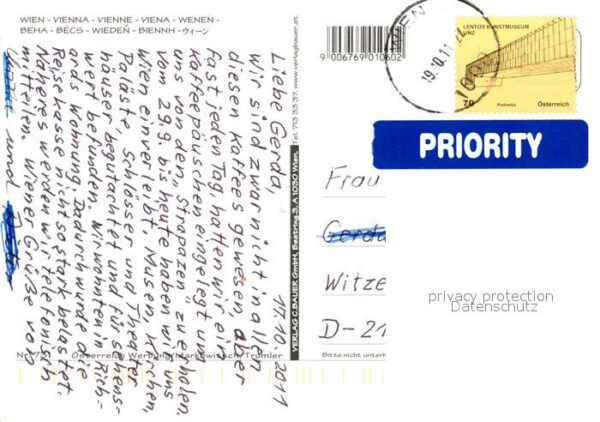 WIEN - VIENNA - VIENNE - VIENA - WENEN -
BEHA - BÉCS - WIEDEŃ - BIENNH - ウィーン
17.10.2011
Liebe Gerda,
wir sind zwar nicht in allen
diesen Kaffees gewesen, aber
fast jeden Tag hatten wir ein
Kaffeepäuschen eingelegt um
uns von den „Strapazen" zu erholen.
Vom 29.9. bis heute haben wir uns
Wien einverleibt. Museen, Kirchen,
Paläste, Schlösser und Theater-
häuser begutachtet und für sehens-
wert befunden. Wir wohnten in Rich-
ards Wohnung. Dadurch wurde die
Reisekasse nicht so stark belastet.
Näheres werden wir telefonisch
mitteilen. Wiener Grüße von
und
Nr. 731 Österreich Werbung/Markowitsch/Trumler
VERLAG C. BAUER GmbH, Beatrixg. 3, A 1030 Wien,
Tel. 713 33 37, www.verlagbauer.at
9006769010602
WIEN
19.10.11
LENTOS KUNSTMUSEUM
LINZ
70
Prohaska
Österreich
PRIORITY
Frau
Gerda
Witze
D-21
privacy protection
Datenschutz
Bitte nicht unterh